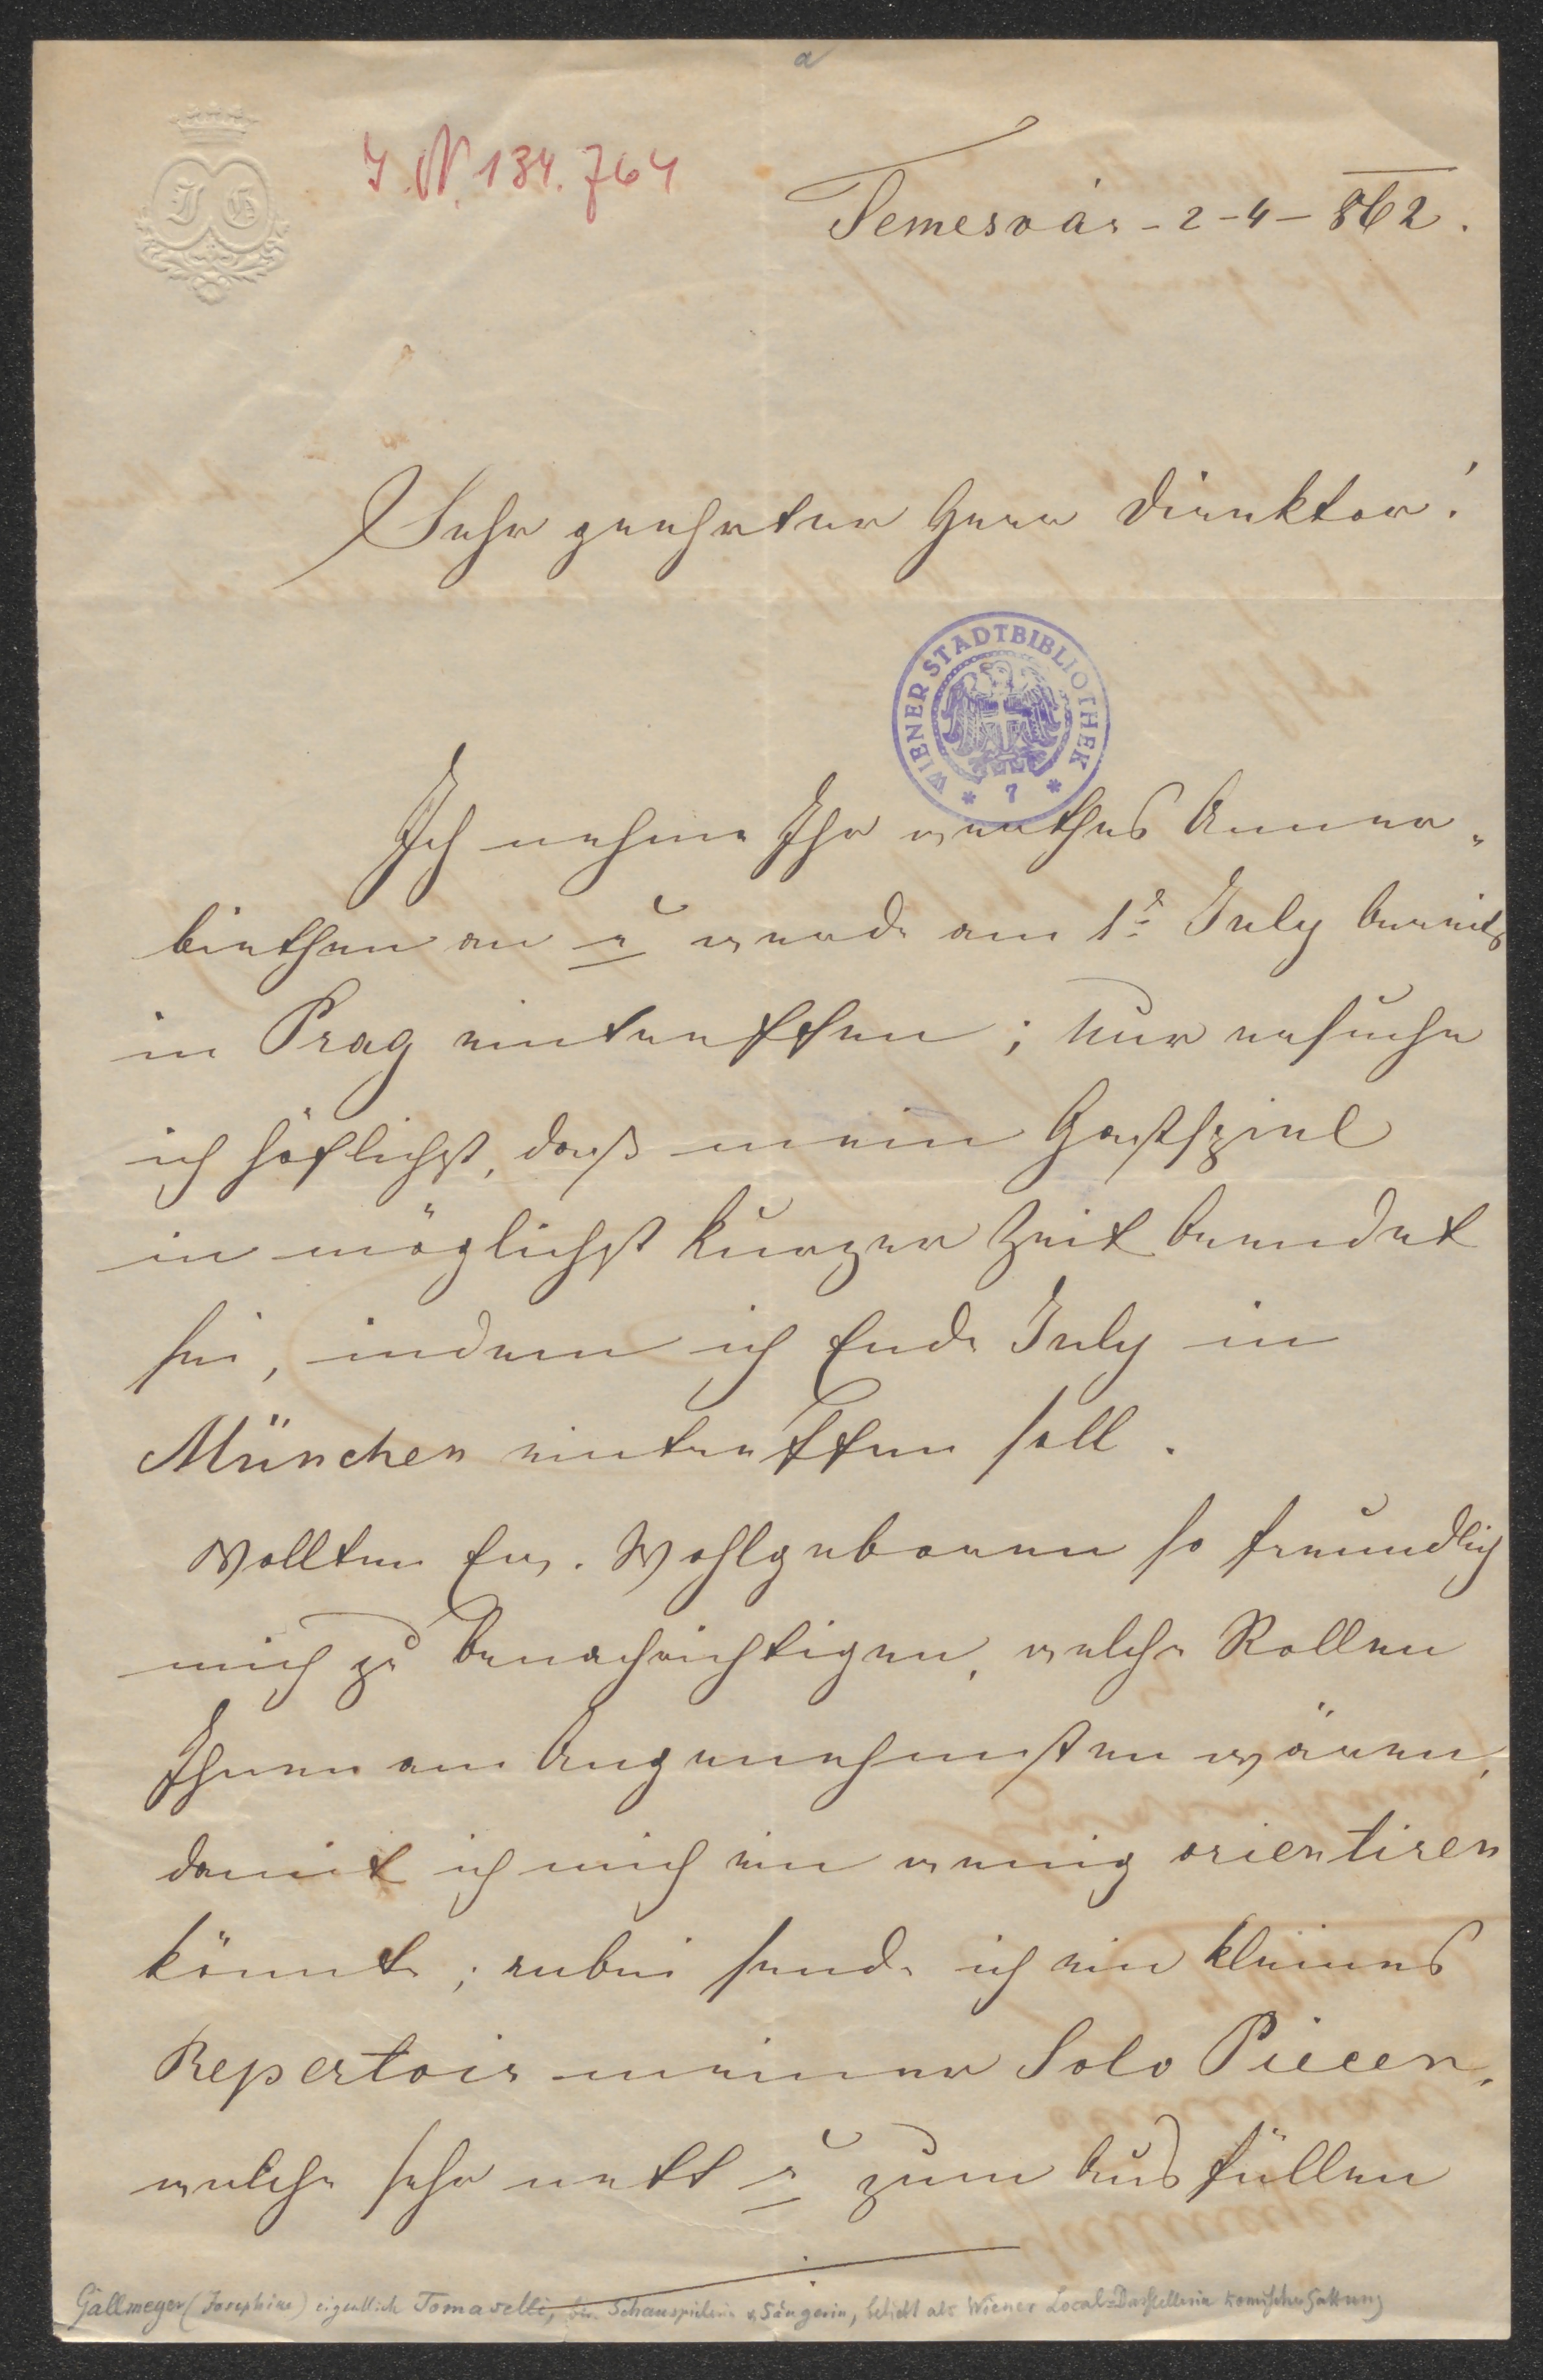 a
J G
I.N. 134.764
Temesvár - 2 - 4 - 862.
Sehr geehrter Herr Direktor!
WIENER STADTBIBLIOTHEK
* 7 *
Ich nehme Ihr werthes Anner-
biethen an u werde am 1t July bereits
in Prag eintreffen; nur ersuche
ich höflichst, daß mein Gastspiel
in möglichst kurzer Zeit beendet
sei, indem ich Ende July in
München eintreffen soll.
Wollten Euer. Wohlgeboren so freundlich
mich zu benachrichtigen, welche Rollen
Ihnen am Angenehmsten wären,
damit ich mich ein wenig orientiren
könnte; anbei sende ich ein kleines
Repertoir meiner Solo Piecen,
welche sehr nett u zum Ausfüllen
Gallmeyer (Josephine) eigentlich Tomaselli, Schauspielerin u Sängerin, beliebt als Wiener Local-Darstellerin komischer Gattung